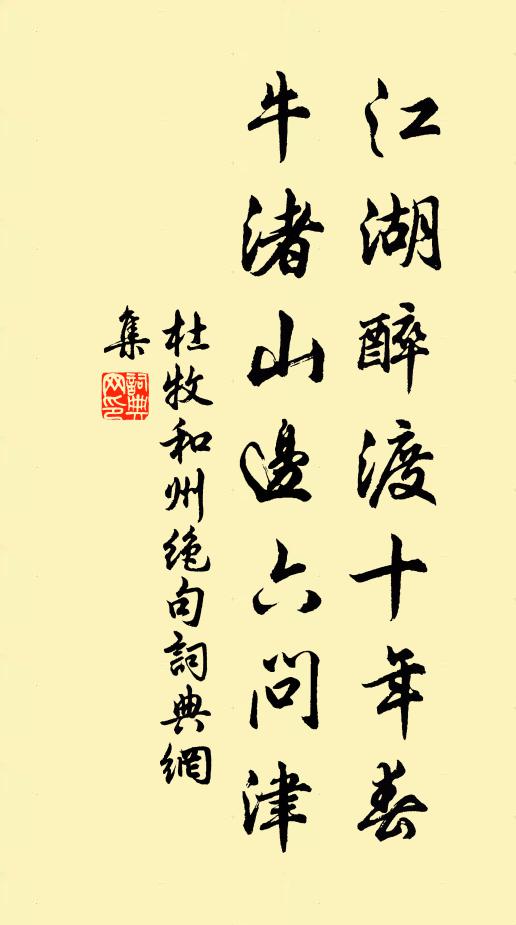 江湖醉渡十年春
牛渚山邊六問津
杜牧和州絶句詞典網
集
詞典
网印